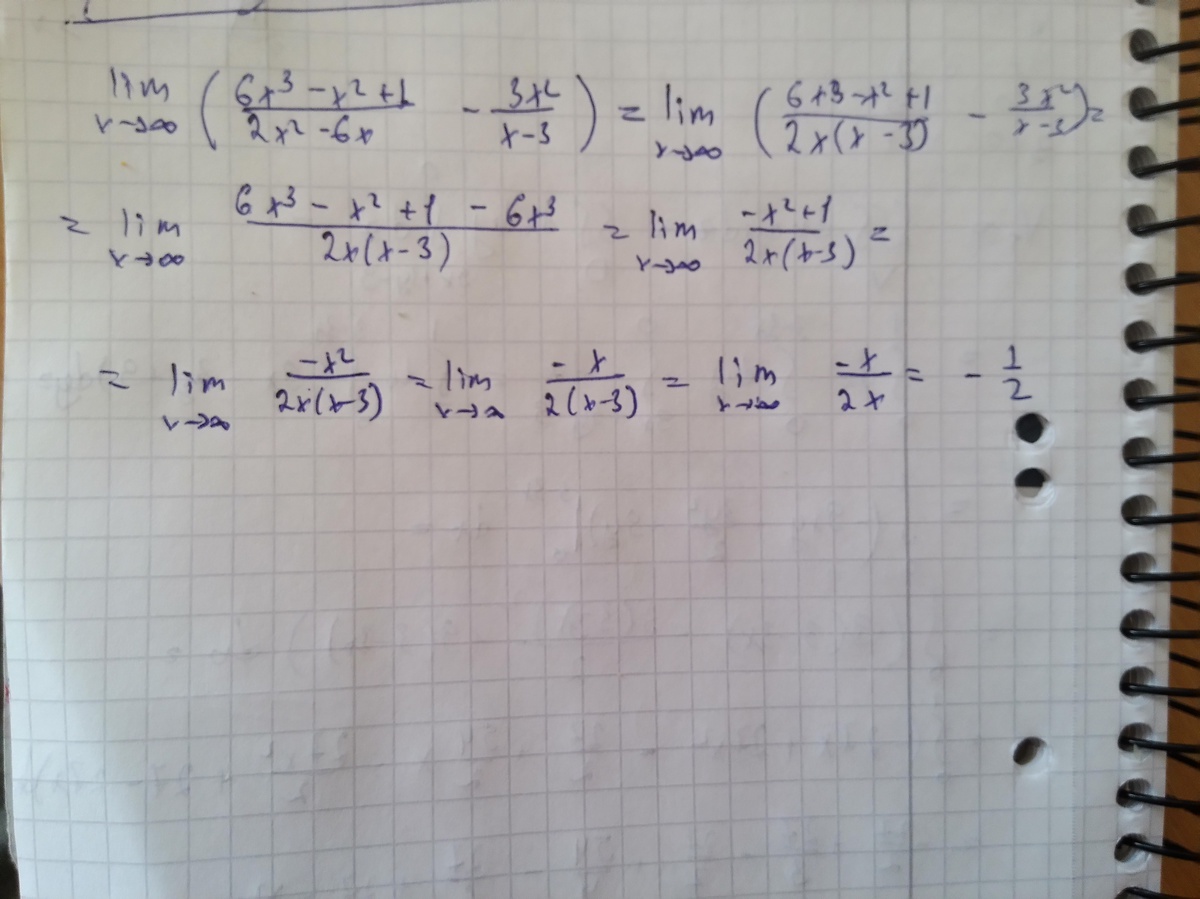 lim x→∞ ( (6x³ − x² + 1)/(2x² − 6x) − 3x²/(x−3) ) = lim x→∞ ( (6x3 − x² + 1)/(2x(x − 3)) − 3x²/(x−3) ) =
= lim x→∞ (6x³ − x² + 1 − 6x³)/(2x(x−3)) = lim x→∞ (−x² + 1)/(2x(x−3)) =
= lim x→∞ −x²/(2x(x−3)) = lim x→∞ −x/(2(x−3)) = lim x→∞ −x/(2x) = − 1/2